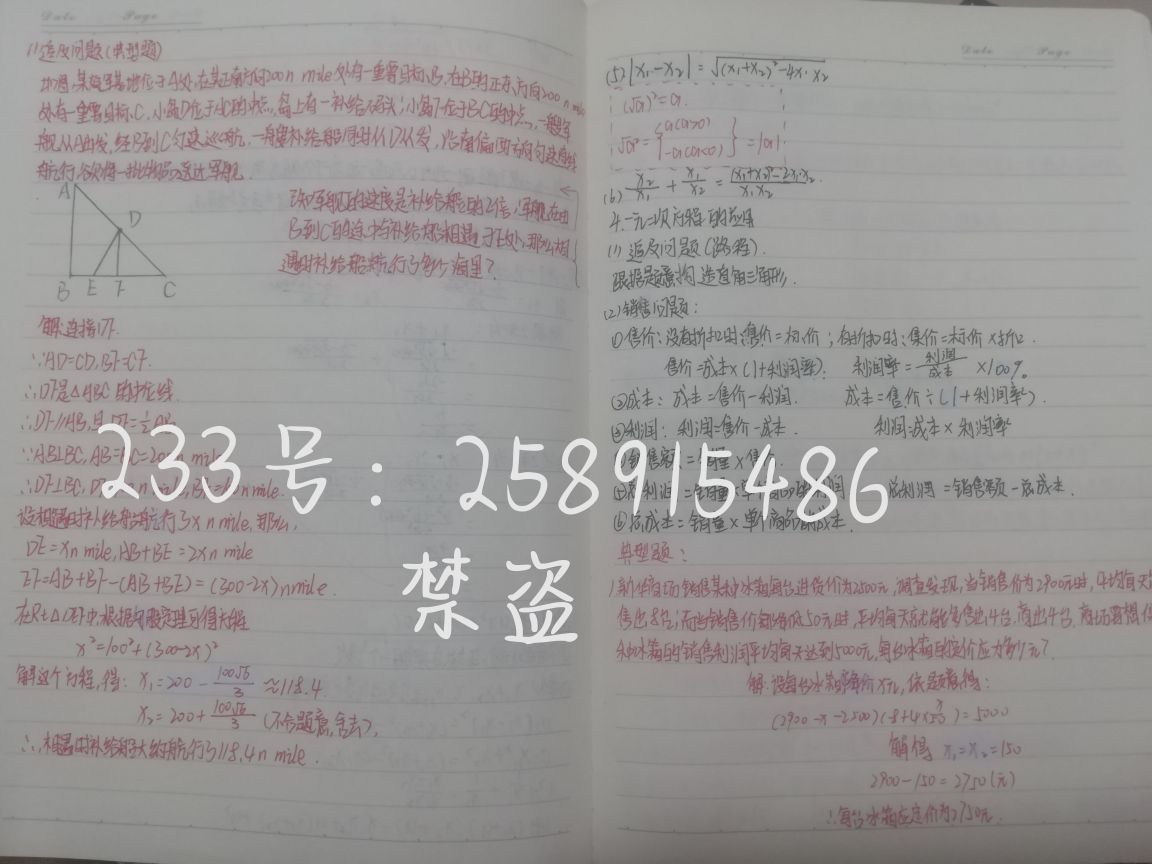 Date Page
(1)追及问题(典型题)
如图,某海军基地位于A处,在其正南方向200 n mile处有一重要目标B,在B的正东方向200 n mile
处有一重要目标C,小岛D位于AC的中点,岛上有一补给码头;小岛F位于BC的中点,一艘军
舰从A出发,经B到C匀速巡航,一艘补给船同时从D出发,沿南偏西方向匀速直线
航行,欲将一批物品送达军舰.
已知军舰的速度是补给船的2倍,军舰在由
B到C的途中与补给船相遇于E处,那么相
遇时补给船航行了多少海里?
A
D
B E F C
解:连接DF.
∵AD=CD,BF=CF.
∴DF是△ABC的中位线.
∴DF∥AB,且DF=½AB
∵AB⊥BC,AB=BC=200n mile
∴DF⊥BC,n mile,n mile.
设相遇时补给船航行了x n mile,那么,
DE=xn mile,AB+BE=2xn mile
EF=AB+BF-(AB+BE)=(300-2x)nmile.
在Rt△DEF中,根据勾股定理可得方程
x²=100²+(300-2x)²
解这个方程,得: x₁=200-100√6/3≈118.4
x₂=200+100√6/3(不合题意,舍去),
∴相遇时补给船大约航行了118.4n mile.
Date Page
(5)|x₁-x₂|=√(x₁+x₂)²-4x₁·x₂
(√a)²=a.
√a²={a(a>0) -a(a<0)}=|a|
(6) x₂/x₁+x₁/x₂=(x₁+x₂)²-2x₁x₂/x₁x₂.
4.一元二次方程的应用
(1)追及问题(路程).
根据题意构造直角三角形.
(2)销售问题:
①售价:没有折扣时:售价=标价;有折扣时:售价=标价×折扣.
售价=成本×(1+利润率). 利润率=利润/成本×100%.
②成本:成本=售价-利润. 成本=售价÷(1+利润率).
③利润:利润=售价-成本. 利润=成本×利润率
④销售额=销量×售价
⑤总利润=销量×单个商品的利润 总利润=销售额-总成本.
⑥总成本=销量×单个商品的成本.
典型题:
1.新华商场销售某种冰箱每台进货价为2500元,调查发现,当销售价为2900元时,平均每天
售出8台;而当销售价每降低50元时,平均每天就能多售出4台.商出4台.商场要想使
种冰箱的销售利润平均每天达到5000元,每台冰箱的定价应为多少元?
解:设每台冰箱降价x元,依题意得:
(2900-x-2500)(8+4×x/50)=5000
解得 x₁=x₂=150
2900-150=2750(元)
∴每台冰箱应定价为2750元.
233号:258915486
禁盗